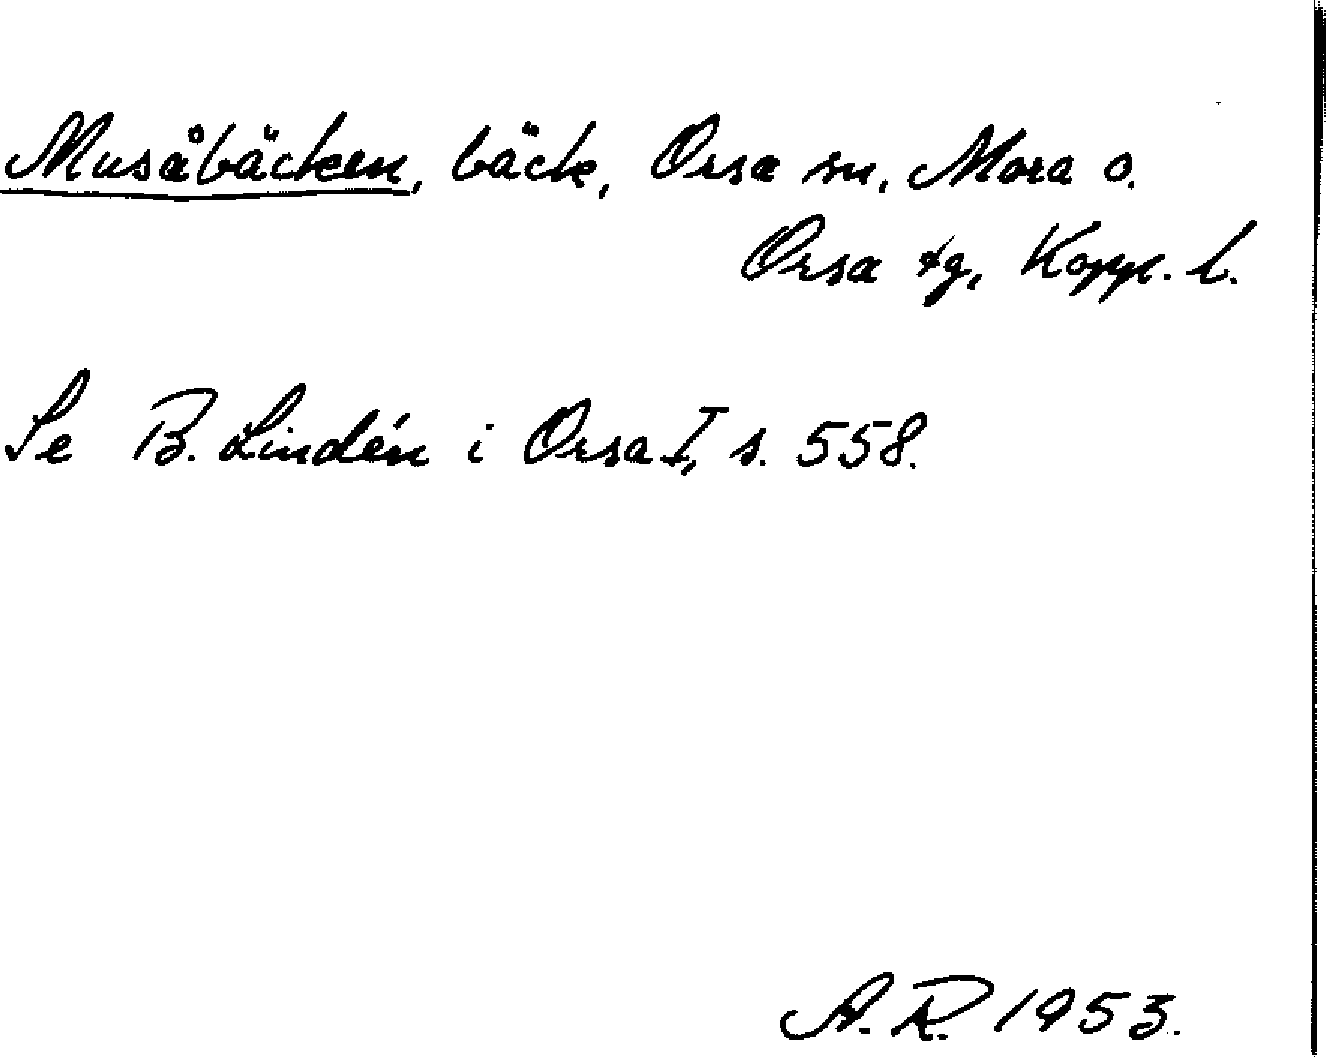 Musåbäcken, bäck, Orsa sn, Mora o.
Orsa tg, Kopp. l.
Se B. Lindén i Orsa I, s. 558.
A. R. 1953.